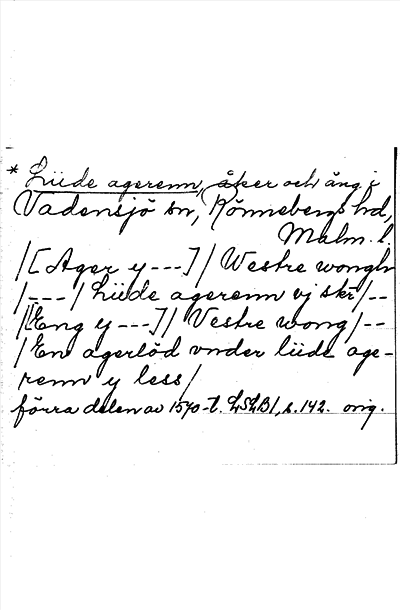 * Lüde agerenn, åker och äng i
Vadensjö sn, Rönnebergs hd,
Malm. l.
/[Ager y---]/ Westre wongh
/---/ Lüde agerenn vj skr/--
/[Eng y---]/ Vestre wong/--
/En agerlöd vnder lüde age-
renn y less/
förra delen av 1570-t. LSLB1, s. 142. orig.